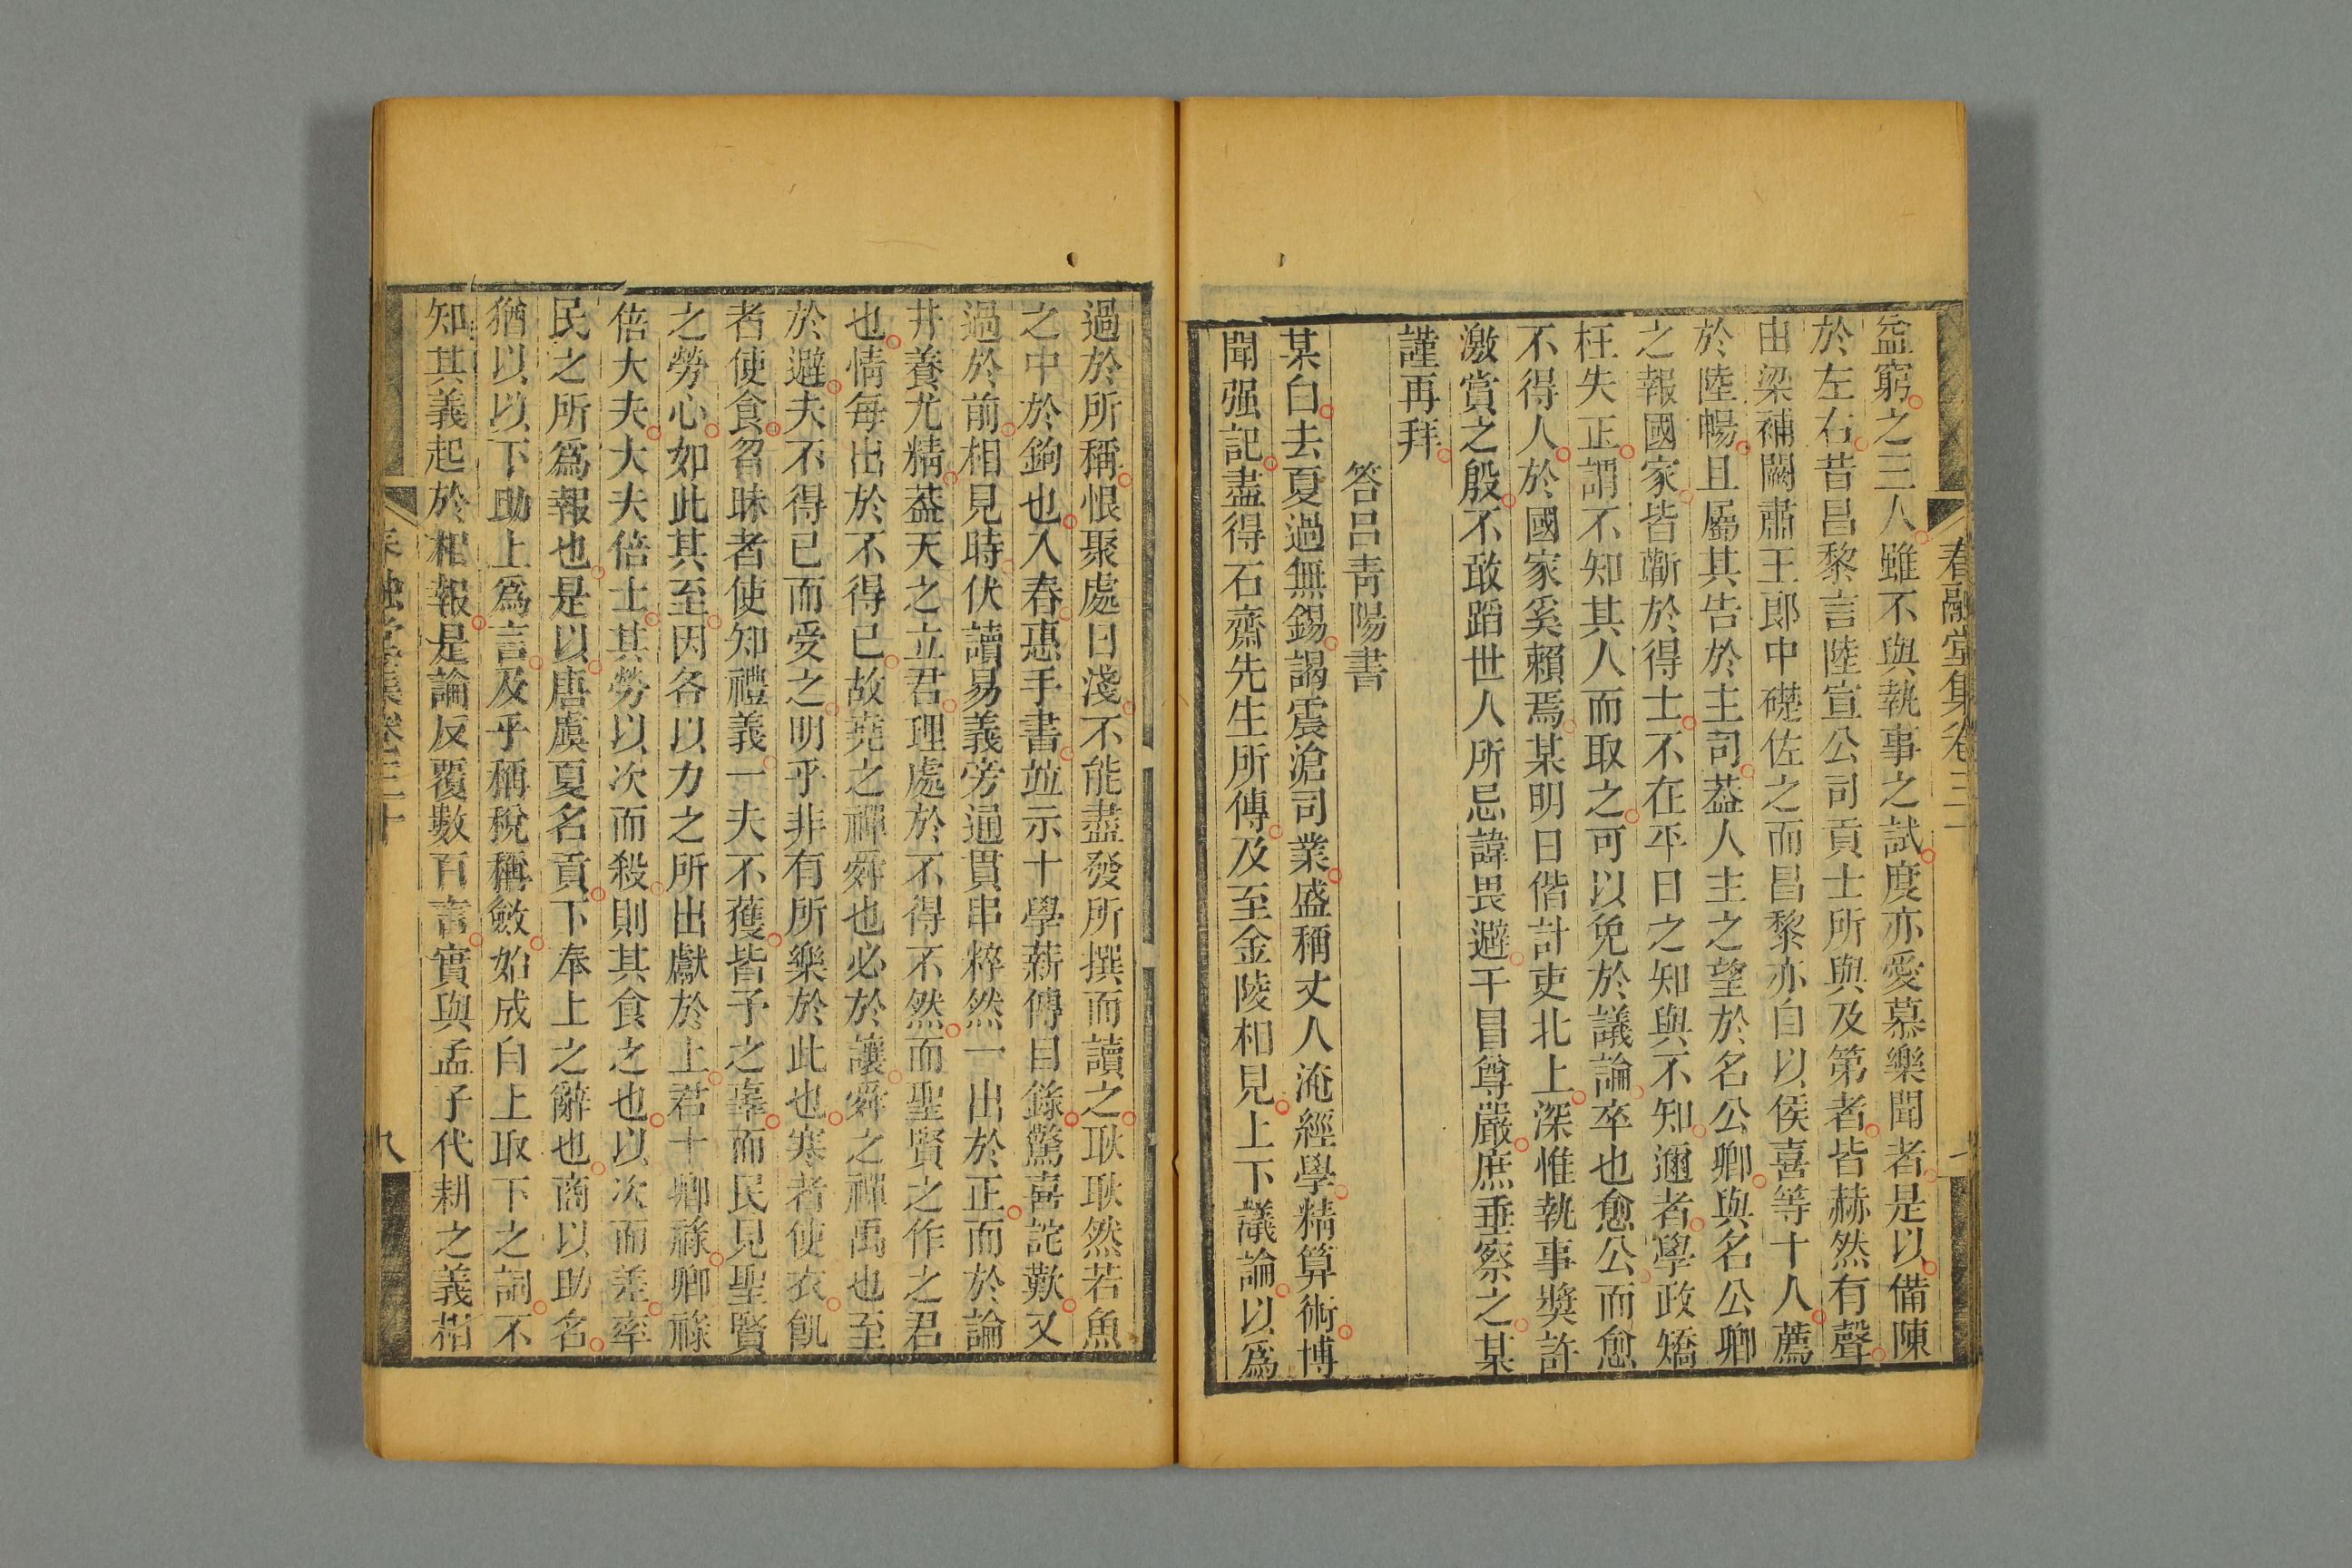 春融堂集卷三
益窮之三人雖不與執事之試度亦愛慕樂聞者是以備陳
於左右昔昌黎言陸宣公司貢士所與及第者皆赫然有聲
由梁補闕肅王郎中礎佐之而昌黎亦自以侯喜等十人薦
於陸暢且屬其告於主司葢人主之望於名公卿與名公卿
之報國家皆蘄於得士不在平日之知與不知邇者學政矯
枉失正謂不知其人而取之可以免於議論卒也愈公而愈
不得人於國家奚賴焉某明日偕計吏北上深惟執事獎許
激賞之殷不敢蹈世人所忌諱畏避干冒尊嚴庶垂察之某
謹再拜
答呂青陽書
某白去夏過無錫謁震滄司業盛稱丈人淹經學精算術博
聞强記盡得石齋先生所傳及至金陵相見上下議論以爲
過於所稱恨聚處日淺不能盡發所撰而讀之耿耿然若魚
之中於鉤也入春惠手書竝示十學薪傳目錄驚喜詫歎又
過於前相見時伏讀易義旁通貫串粹然一出於正而於論
井養尤精葢天之立君理處於不得不然而聖賢之作之君
也情每出於不得已故堯之禪舜也必於讓舜之禪禹也至
於避夫不得已而受之明乎非有所樂於此也寒者使衣飢
者使食智昧者使知禮義一夫不獲皆予之辜而民見聖賢
之勞心如此其至因各以力之所出獻於上君十卿祿卿祿
倍大夫大夫倍士其勞以次而殺則其食之也以次而差率
民之所爲報也是以唐虞夏名貢下奉上之辭也商以助名
猶以以下助上爲言及乎稱稅稱斂始成自上取下之詞不
知其義起於相報是論反覆數百言實與孟子代耕之義相
春融堂集卷三十
九